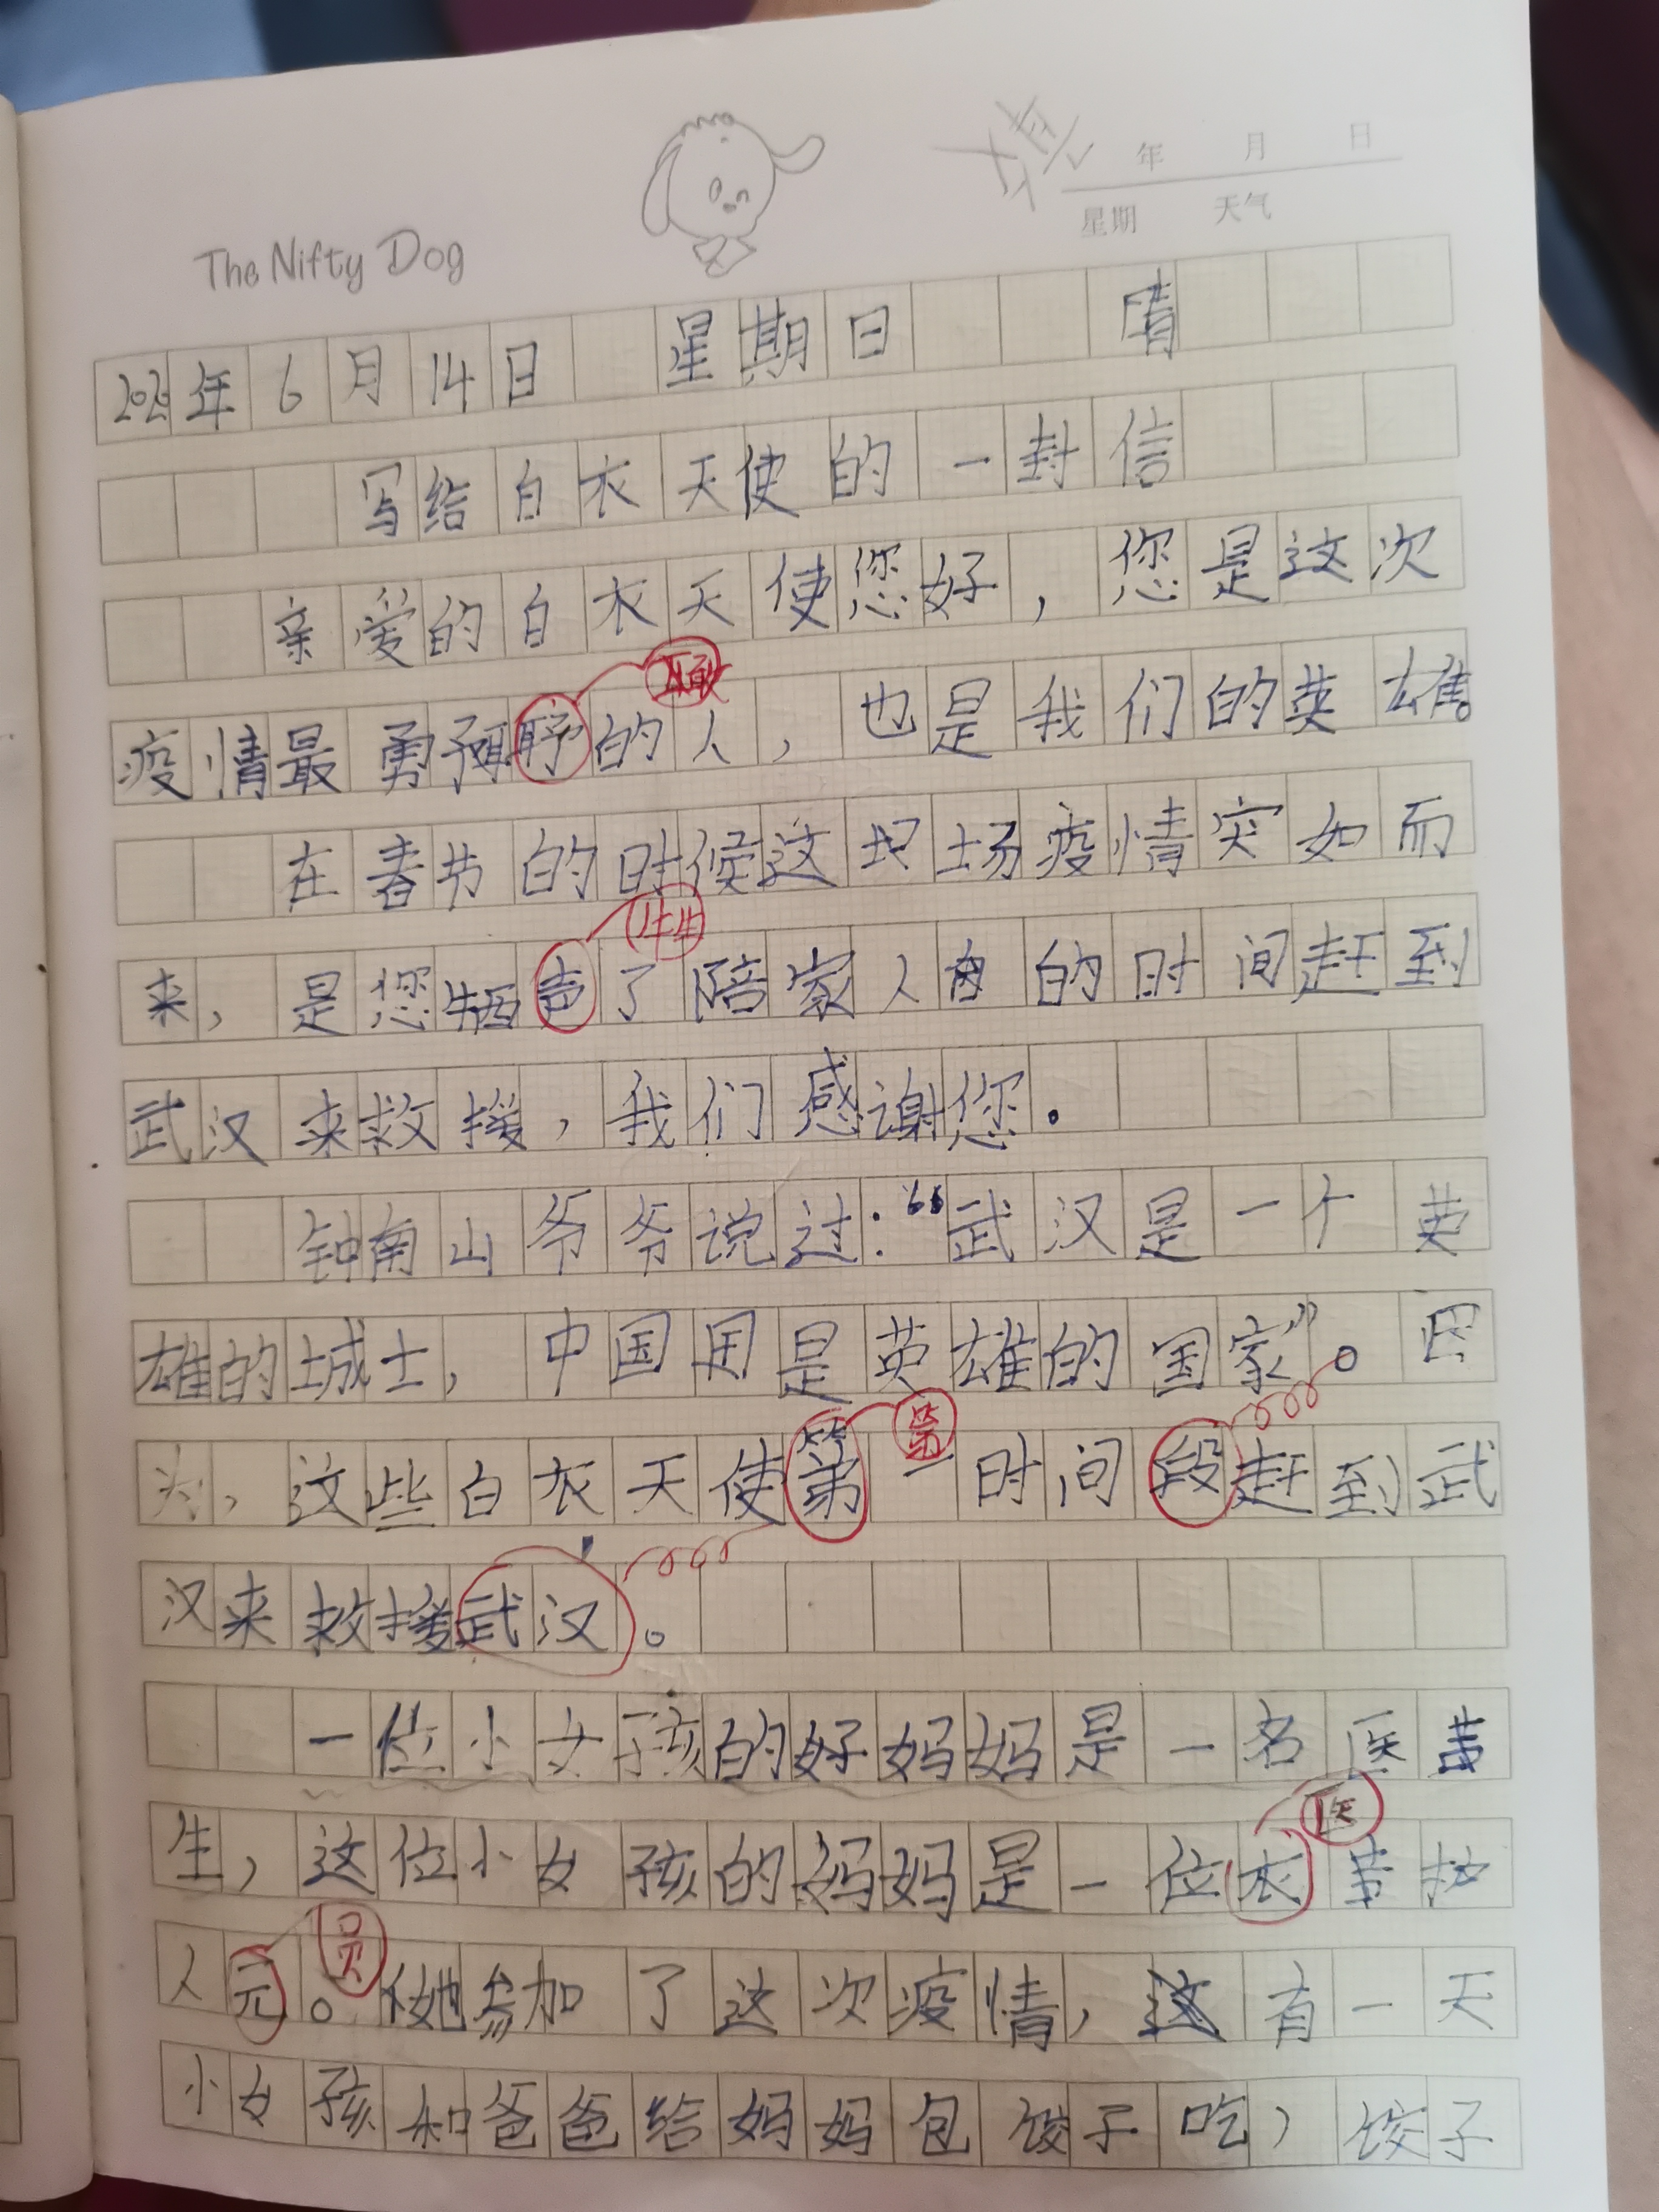 年 月 日
星期 天气
The Nifty Dog
2020年6月14日 星期日 晴
写给白衣天使的一封信
亲爱的白衣天使您好，您是这次
敢
疫情最勇的人，也是我们的英雄。
在春节的时候这场疫情突如而
牲
来，是您牺声了陪家人的时间赶到
武汉来救援，我们感谢您。
钟南山爷爷说过：“武汉是一个英
雄的城士，中国是英雄的国家”。因
第
为，这些白衣天使第一时间段赶到武
汉来救援武汉。
一位小女孩的好妈妈是一名医
医
生，这位小女孩的妈妈是一位衣护
员
人元。她参加了这次疫情，这有一天
小女孩和爸爸给妈妈包饺子吃，饺子